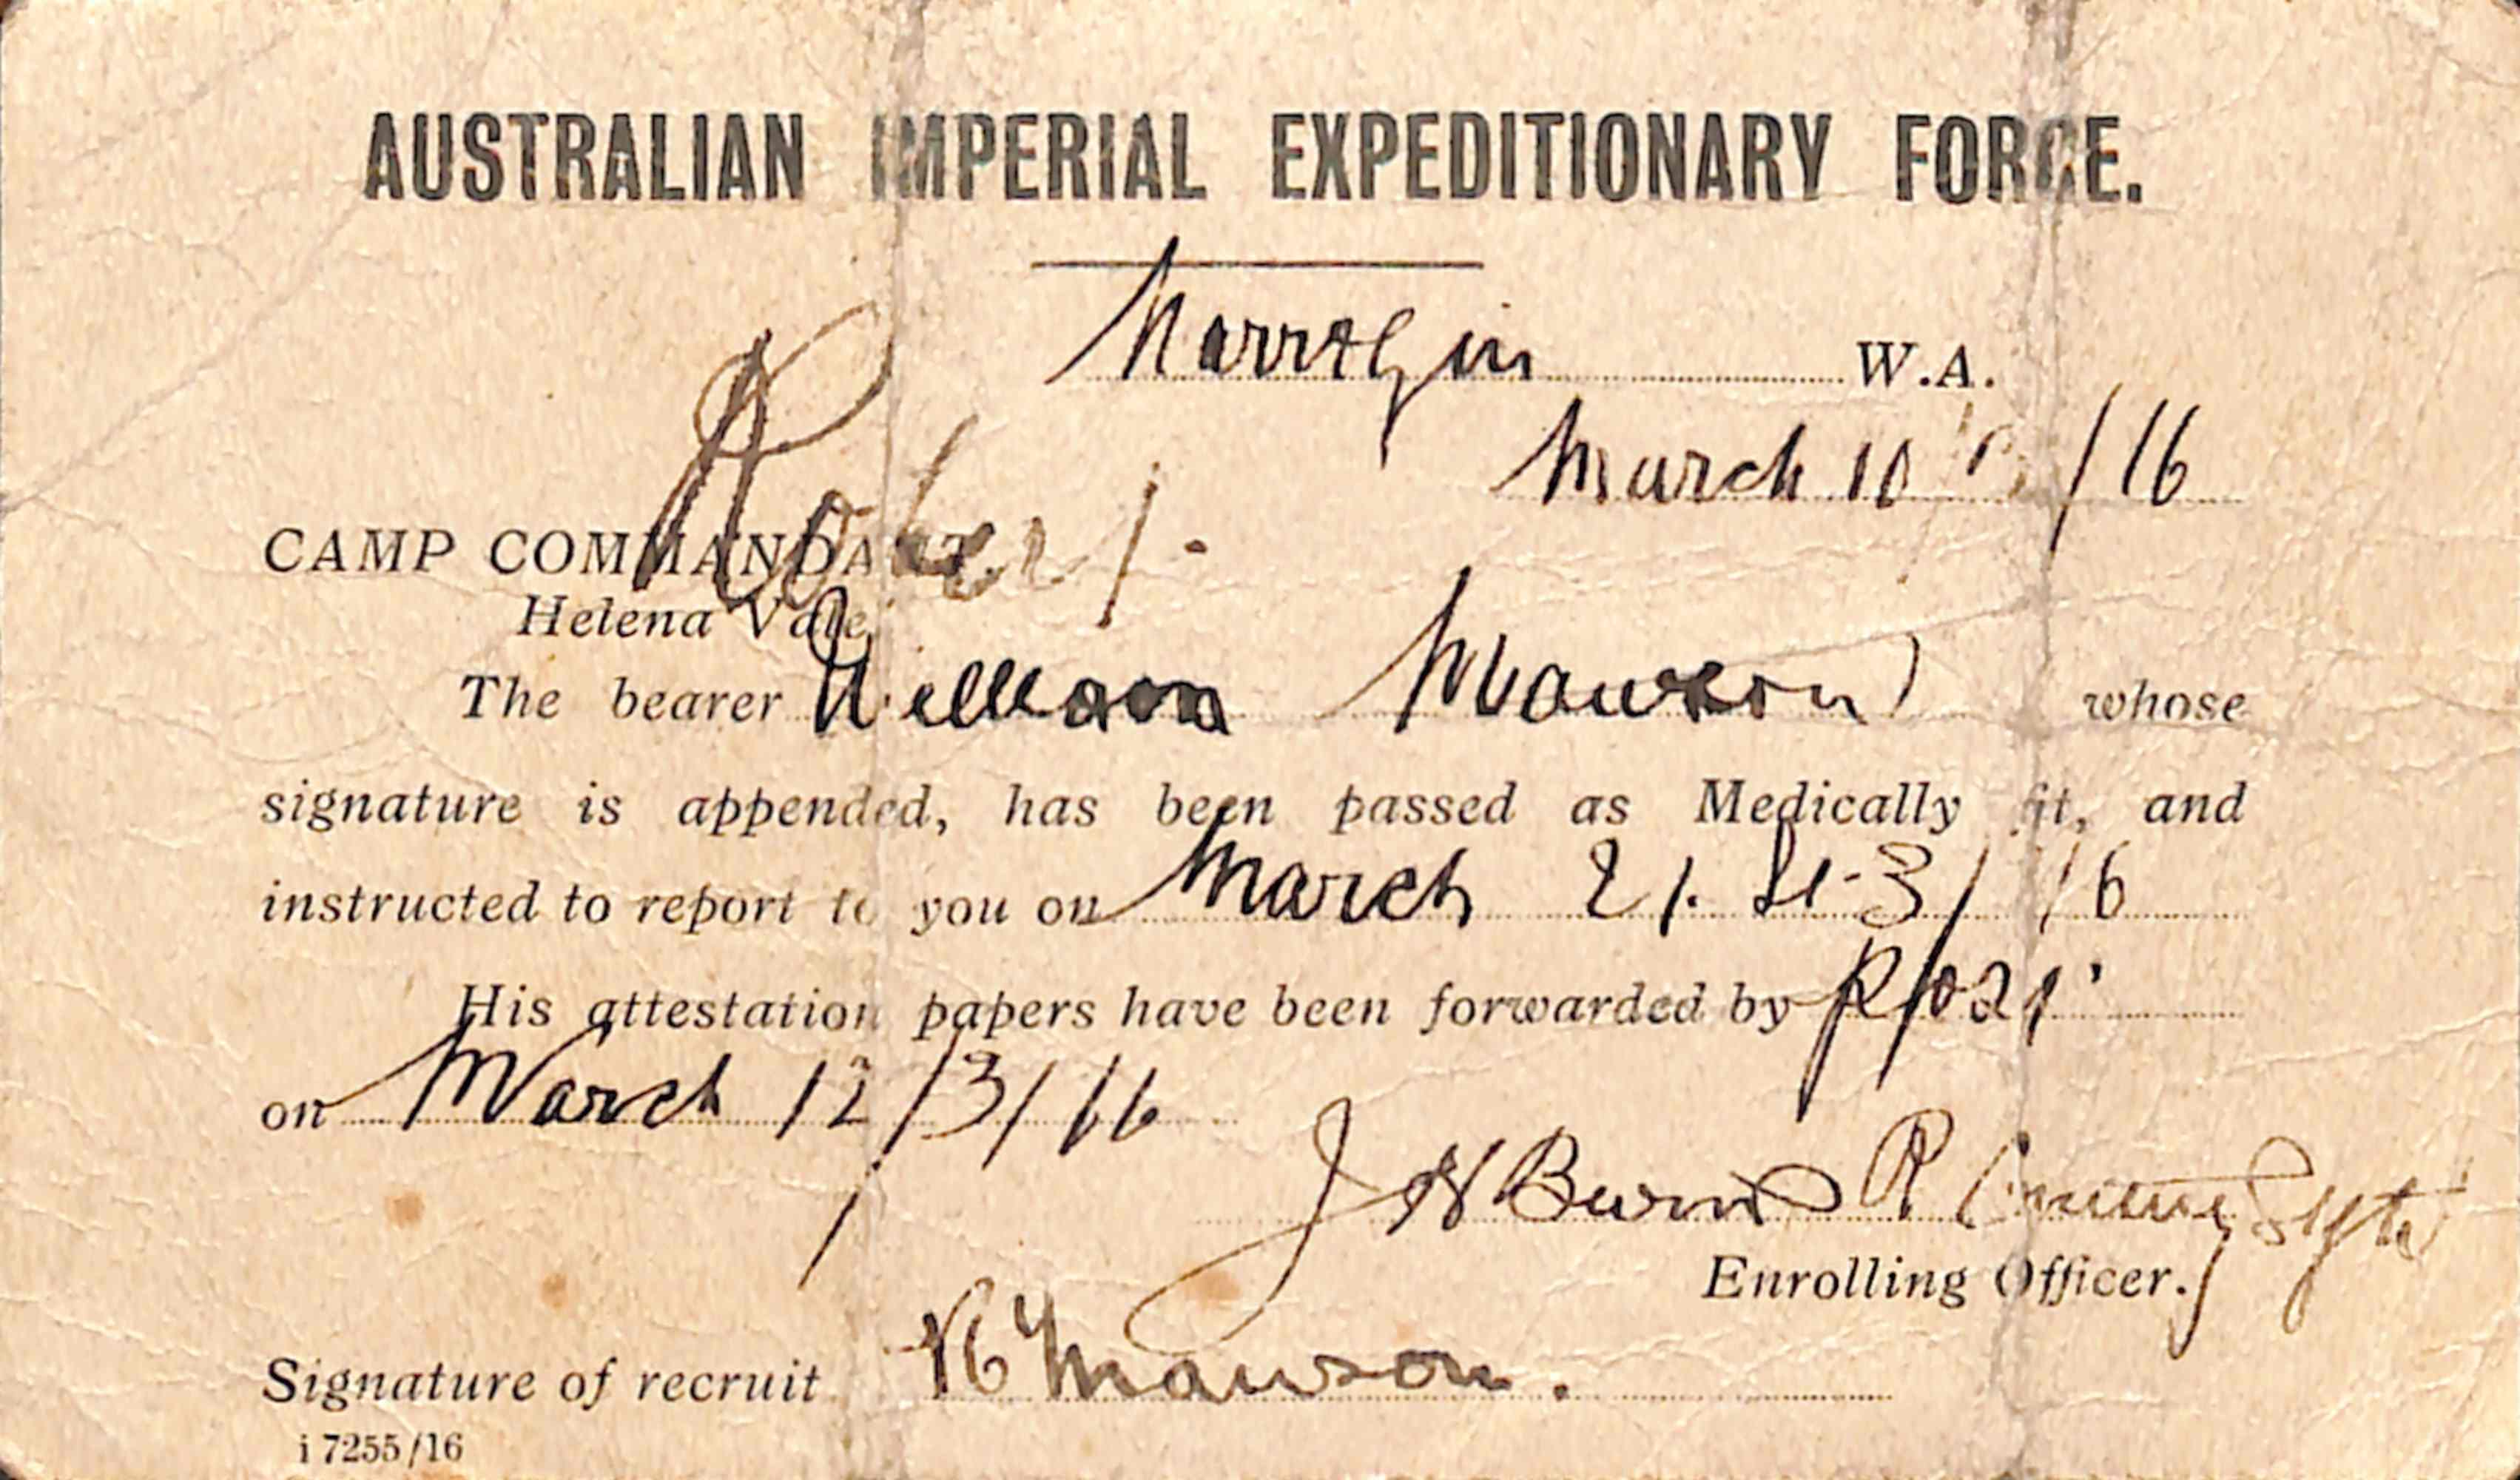 AUSTRALIAN IMPERIAL EXPEDITIONARY FORCE.
Narrogin W.A.
March 10 /16
Robert.
CAMP COMMANDANT,
Helena Vale,
The bearer William Mawson whose
signature is appended, has been passed as Medically fit, and
instructed to report to you on March 21. 3/16
His attestation papers have been forwarded by post
on March 12/3/16
J H Burns R
Enrolling Officer.
Signature of recruit Mawson.
i 7255/16